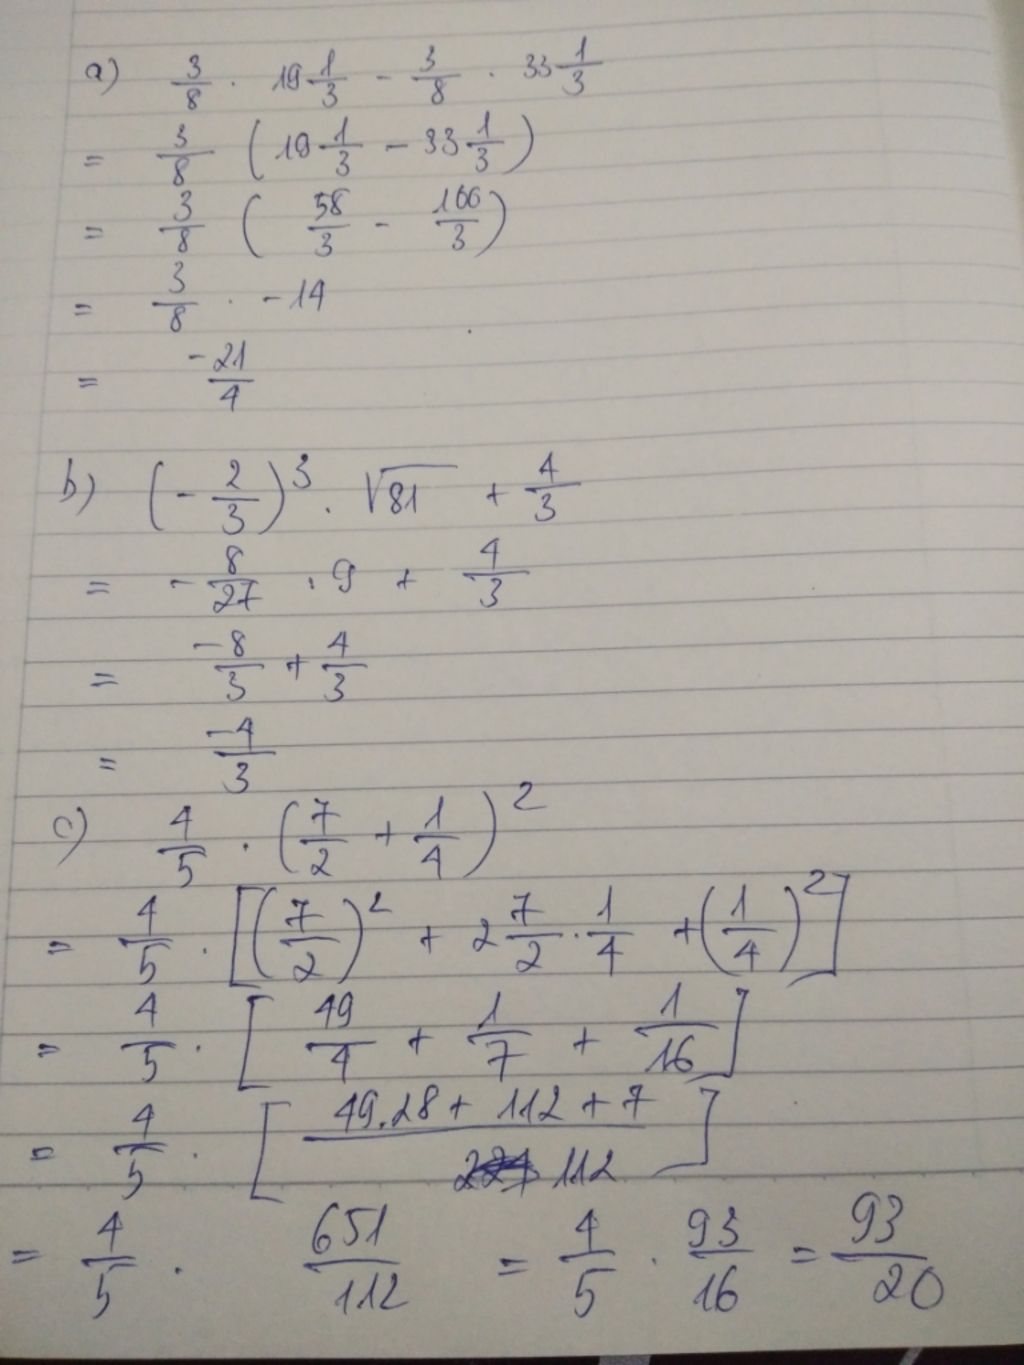 a) 3/8 . 19 1/3 - 3/8 . 33 1/3
= 3/8 (19 1/3 - 33 1/3)
= 3/8 (58/3 - 100/3)
= 3/8 . -14
= -21/4
b) (-2/3)³ . √81 + 4/3
= -8/27 . 9 + 4/3
= -8/3 + 4/3
= -4/3
c) 4/5 . (7/2 + 1/4)²
= 4/5 . [(7/2)² + 2 7/2 . 1/4 + (1/4)²]
= 4/5 . [49/4 + 1/7 + 1/16]
= 4/5 . [49.28 + 112 + 7 / 112]
= 4/5 . 651/112 = 4/5 . 93/16 = 93/20